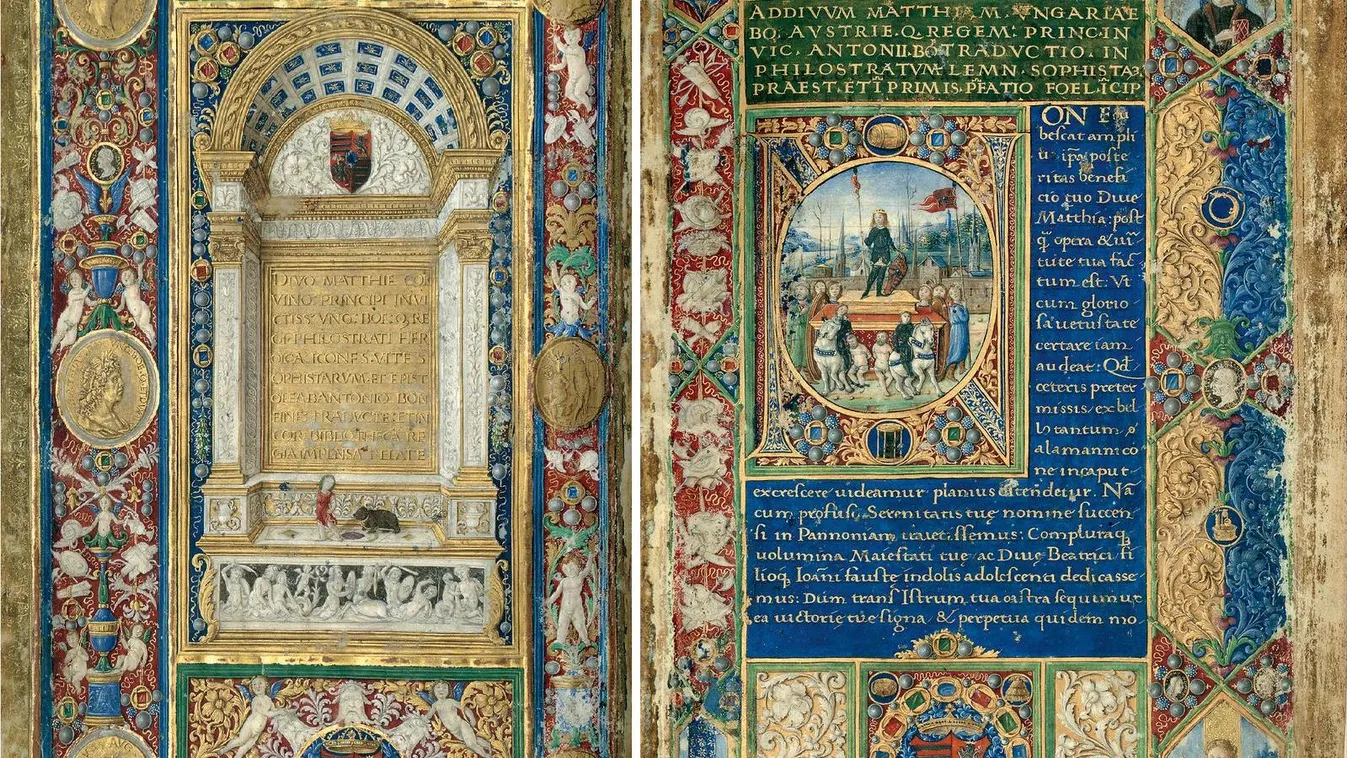 DIVO MATTHIE COR
VINO PRINCIPI INVI
CTISS. VNG. BOEQ. RE
GI PHILOSTRATI HER
OICA ICONES VITE
OPHISTARVM ET EPIST
OLE AB ANTONIO BON
FINE TRADVCTE ET IN
COR. BIBLIOTHECA RE
GIA IMPENSA RELATE
AD DIVVM MATTHIAM. VNGARIAE
BO. AVSTRIE. Q. REGEM: PRINC. IN
VIC. ANTONII. BO. TRADVCTIO. IN
PHILOSTRATVM LEMN. SOPHISTA
PRAEST. ET Ī PRIMIS. PFATIO FOELICIP
ON
bescat ampli
ipa poste
ritas benefi
cio tuo Diue
Matthia: post
q̃ opera & uir̃
tute tua fac̃
tum est: Vt
cum glorio
sa uetustate
certare iam
audeat: Qd̃
ceteris preter
missis, ex bel
lo tantum
alamannico
ne in caput
excrescere uideamur planius ostendetur. Nã
cum profusi, Serenitatis tuę nomine succen
si in Pannoniam uenissemus: Compluraq,
uolumina Maiestati tue ac Diue Beatrici fi
lioq, Ioani fauste indolis adolescenti dedicasse
mus: Dum trans Istrum tua castra sequimur
ea uictorie tue signa & perpetua quidem mo